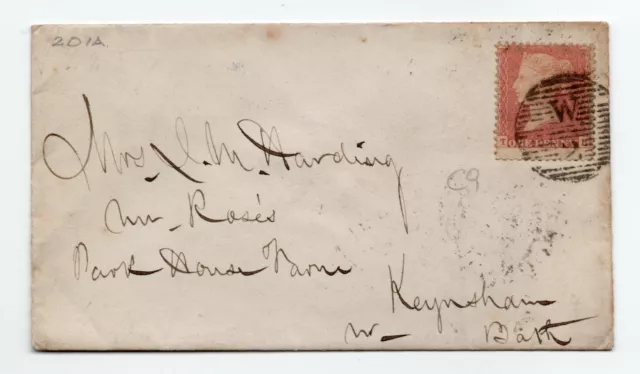 201A
W
ONE PENNY
Mrs. J. M. Harding
C9
Mr Rose's
Park House Farm
Keynsham
nr Bath